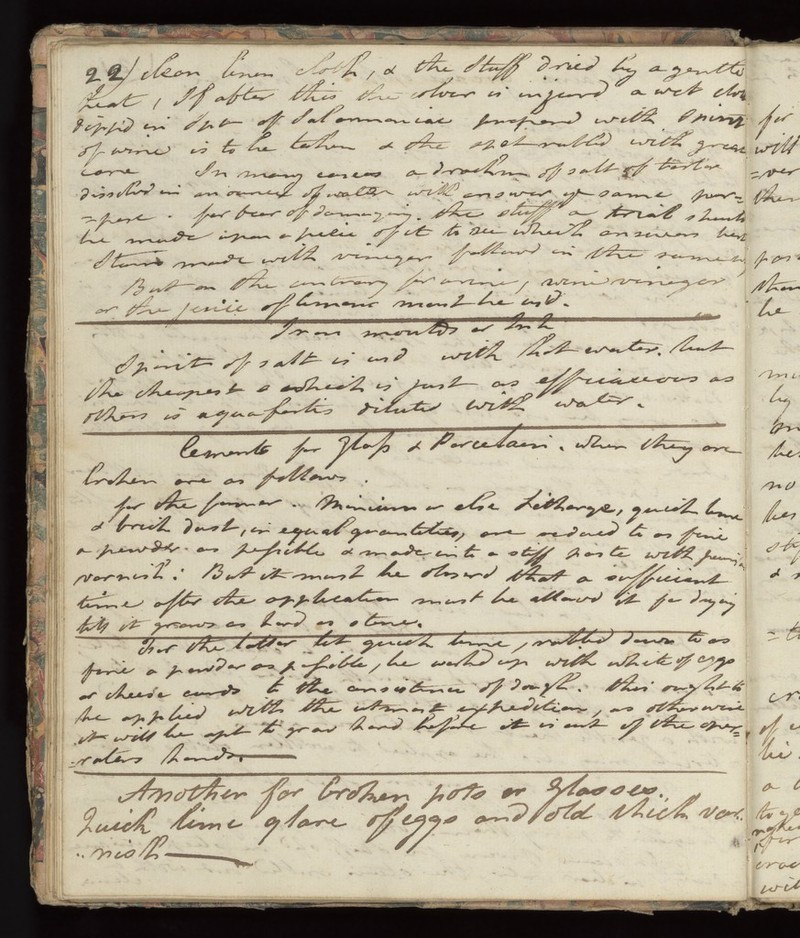 22) clean linen cloth, & the stuff dried by a gentle
heat, If after this the colour is injured a wet clo
dipp'd in Spt. of Salarmoniac prepared with Spirit
of wine is to be taken & the spot rubbed with great
care In many cases a drachm of salt of tartar
dissolved in an ounce of water will answer ye same pur=
=pose. for fear of damaging the stuff a trial should
be made upon a piece of it to see which answers best
Stains made with vinegar follow'd in the same
But on the contrary for urine, wine vinegar
or the juice of limons must be us'd.
Iron moulds or Ink
Spirit of salt is us'd with hot water, but
the cheapest & which is just as efficaceous as
others is aquafortis diluted with water.
Cements for Glass & Porcelain. when they are
broken are as follows.
for the former. Minium or else Litharge, quick lime
& brick dust, in equal quantities, are reduced to as fine
a powder as possible & made into a stiff paste with
varnish: But it must be observd that a sufficient
time after the application must be allowd it for drying
till it grows as hard as stone.
For the latter let quick lime, rubbed down to as
fine a powder as possible, be worked up with white of eggs
or cheese curds to the consistence of dough. this ought to
be applied with the utmost expedition, as otherwise
it will be apt to grow hard before it is out of the oper=
=rators hands.
Another for broken pots or Glasses.
Quick lime glare of eggs and old thick var.
..nish